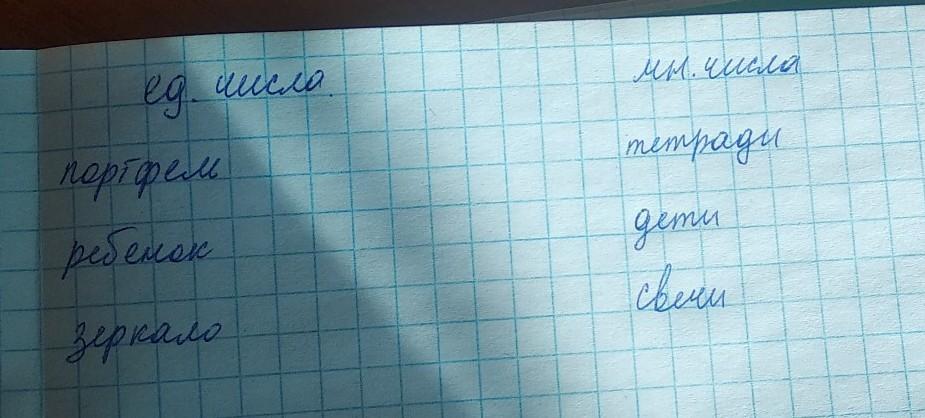 ед. числа.
портфель
ребенок
зеркало
мн. числа
тетради
дети
свечи